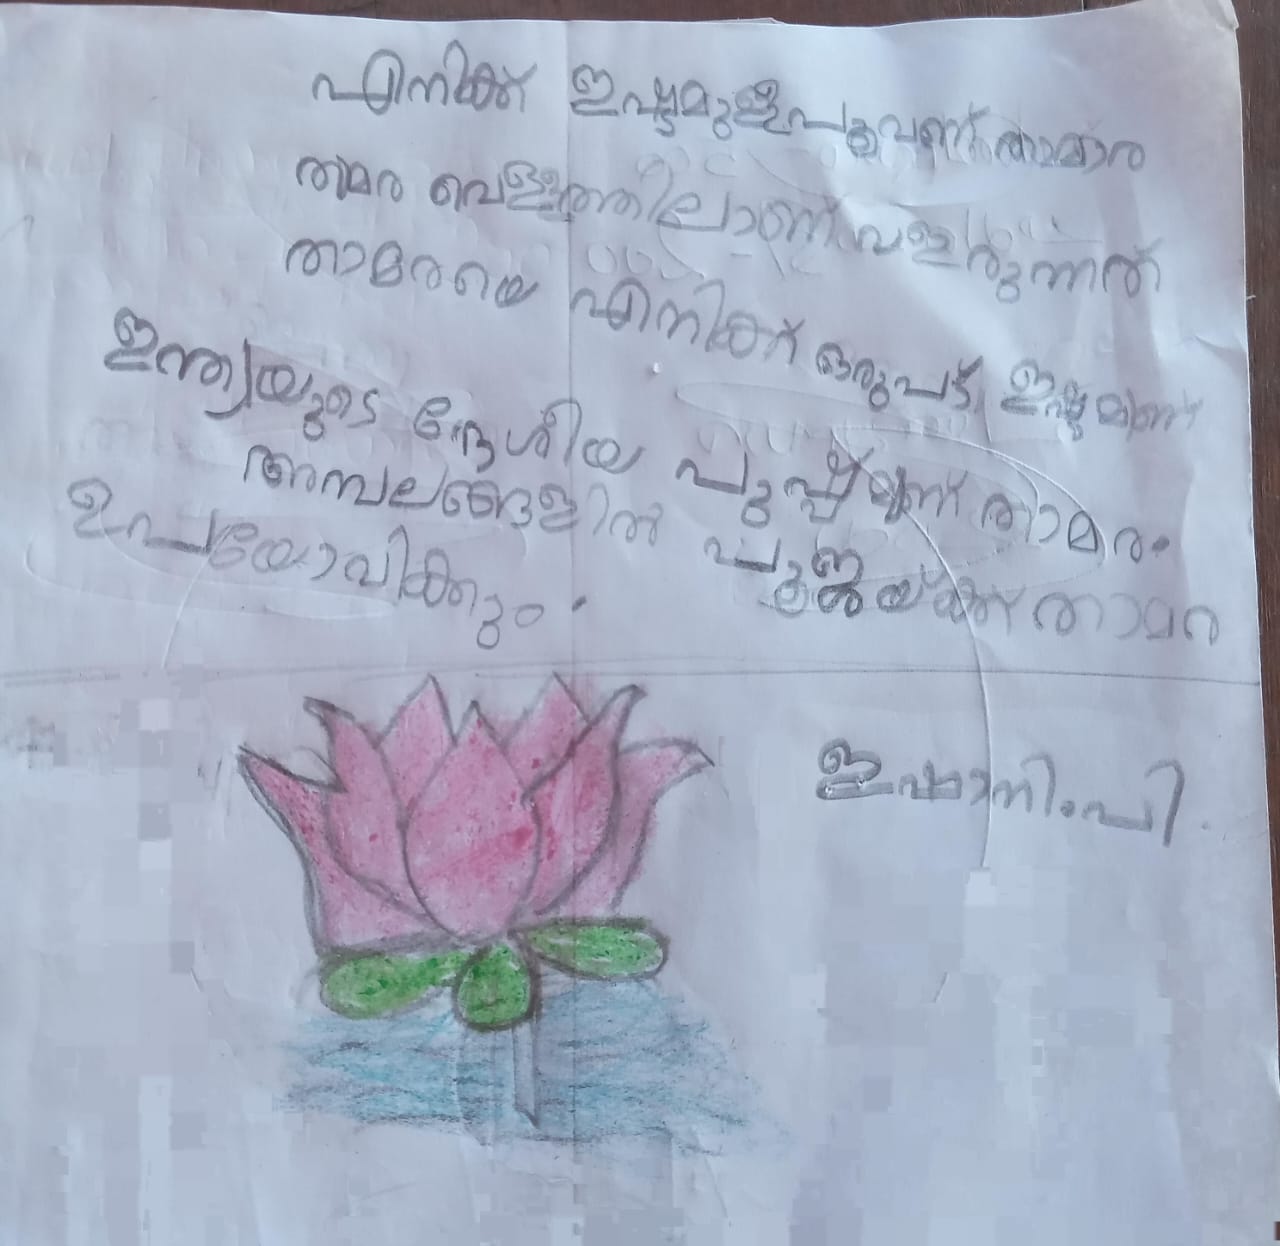 എനിക്ക് ഇഷ്ടമുള്ള പൂവണ് താമര
തമര വെള്ളത്തിലാണ് വളരുന്നത്
താമരയെ എനിക്ക് ഒരുപട് ഇഷ്ടമണ്
ഇന്ത്യയുടെ ദേശീയ പുഷ്പമണ് താമര.
അമ്പലങ്ങളിൽ പൂജയ്ക്ക് താമറ
ഉപയോവിക്കും.
ഇഷാനി.പി